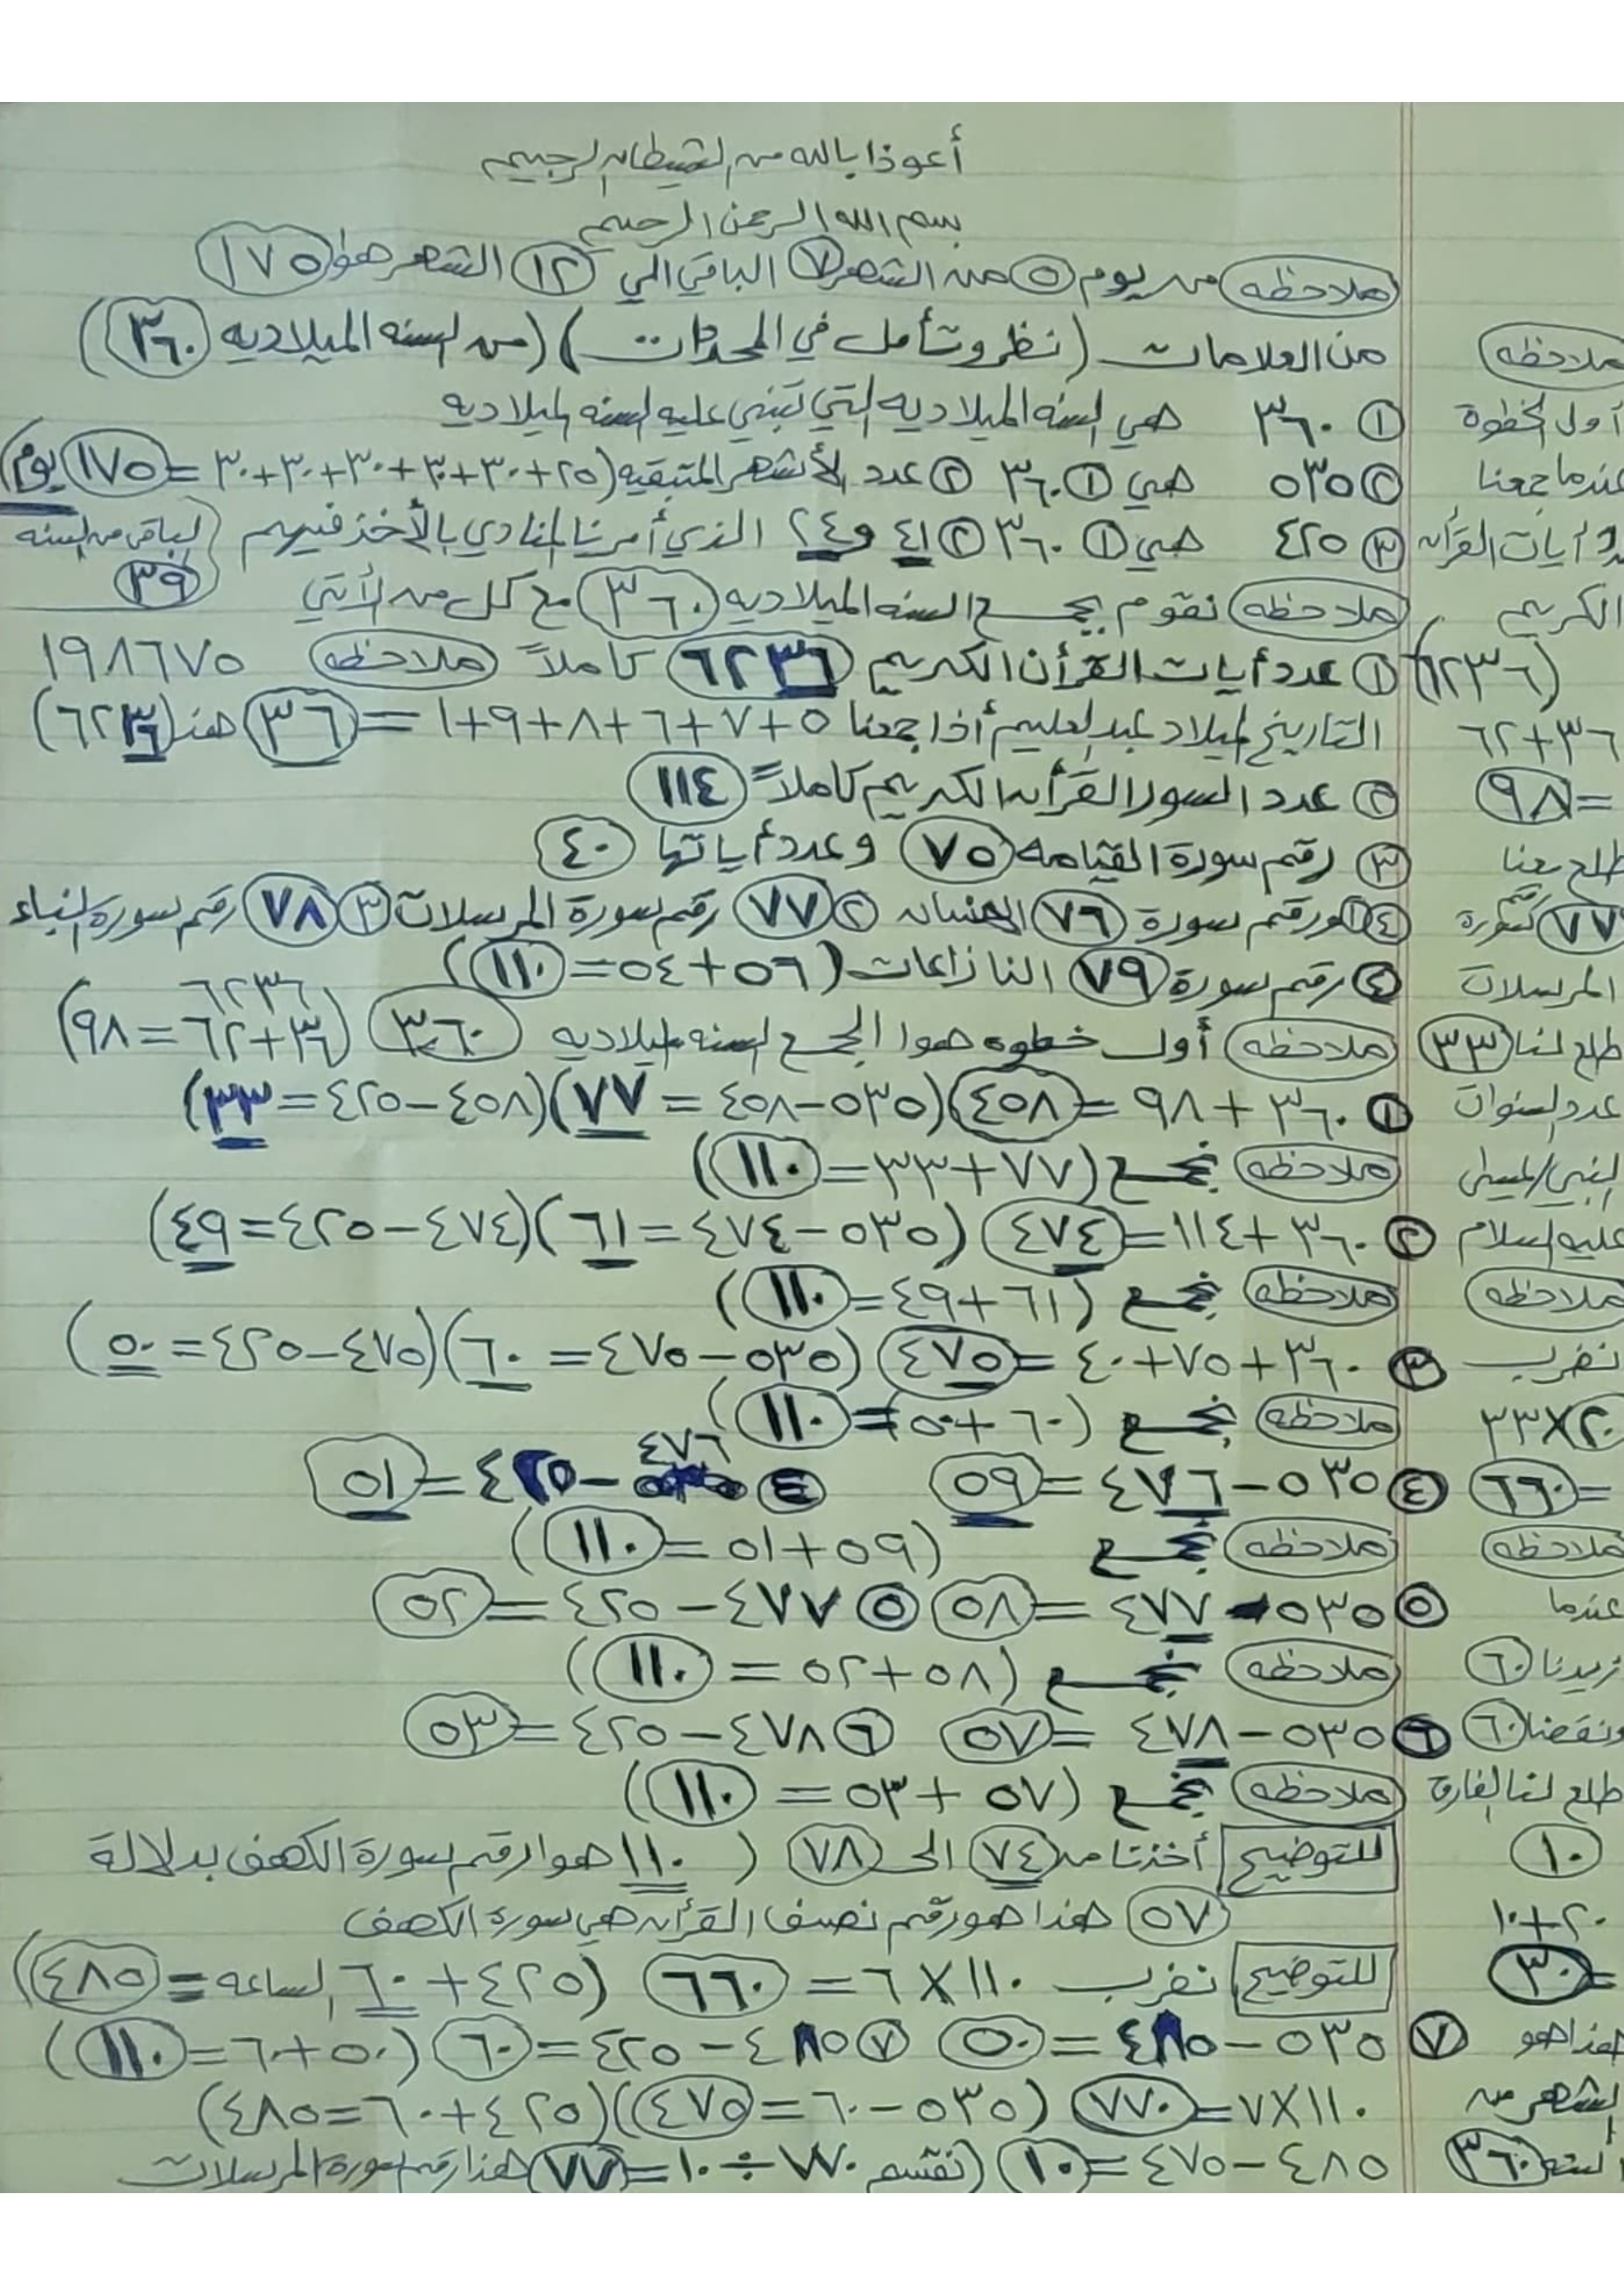 أعوذ بالله من الشيطان الرجيم
بسم الله الرحمن الرحيم
ملاحظه من يوم ٥ من الشهر ٧ الباقي الي ١٢ الشهر هوا ١٧٥
من العلامات (نظر وتأمل في المجرات) (من السنه الميلاديه ٣٦٠)
١ ٣٦٠ هي السنه الميلاديه التي تبني عليه السنه الميلاديه
٢ ٥٣٥ هي ١ ٣٦٠ ٢ عدد الأشهر المتبقيه (٢٥+٣٠+٣٠+٣٠+٣٠+٣٠=١٧٥ يوم)
٣ ٤٢٥ هي ١ ٣٦٠ ٢ ٤١ و ٢٤ الذي أمرنا المنادي بالأخذ فيهم (الباقي من السنه
٣٩
ملاحظه نقوم بجمع السنه الميلاديه ٣٦٠ مع كل من لأتي
١ عدد أيات القرأن الكريم ٦٢٣٦ كاملاً ملاحظه ١٩٨٦٧٥
التاريخ لميلاد عبد العليم أذا جمعنا ٥+٧+٦+٨+٩+١ = ٣٦ هذ (٦٢٣٦)
٢ عدد السور القرأن الكريم كاملاً ١١٤
٣ رقم سورة القيامه ٧٥ وعدد أياتها ٤٠
٤ ١ ورقم سورة ٧٦ الانسان ٢ ٧٧ رقم سورة المرسلات ٣ ٧٨ رقم سورة النباء
٤ رقم سورة ٧٩ النازاعات (٥٦+٥٤=١١٠)
٦٢٣٦
ملاحظه أول خطوه هوا الجمع السنه الميلاديه ٣٦٠ (٣٦+٦٢=٩٨)
١ ٣٦٠+٩٨=٤٥٨ (٥٣٥-٤٥٨=٧٧) (٤٥٨-٤٢٥=٣٣)
ملاحظه نجمع (٧٧+٣٣=١١٠)
٢ ٣٦٠+١١٤=٤٧٤ (٥٣٥-٤٧٤=٦١) (٤٧٤-٤٢٥=٤٩)
ملاحظه نجمع (٦١+٤٩=١١٠)
٣ ٣٦٠+٧٥+٤٠=٤٧٥ (٥٣٥-٤٧٥=٦٠) (٤٧٥-٤٢٥=٥٠)
ملاحظه نجمع (٦٠+٥٠=١١٠)
٤ ٥٣٥-٤٧٦=٥٩ ٤ ٤٧٦-٤٢٥=٥١
ملاحظه نجمع (٥٩+٥١=١١٠)
٥ ٥٣٥-٤٧٧=٥٨ ٥ ٤٧٧-٤٢٥=٥٢
ملاحظه نجمع (٥٨+٥٢=١١٠)
٦ ٥٣٥-٤٧٨=٥٧ ٦ ٤٧٨-٤٢٥=٥٣
ملاحظه نجمع (٥٧+٥٣=١١٠)
للتوضيح أخذنا من ٧٤ الى ٧٨ (١١٠ هوا رقم سورة الكهف بدلالة
٥٧ هذا هو رقم نصف القرأن هي سورة الكهف
للتوضيح نضرب ١١٠×٦=٦٦٠ (٤٢٥+٦٠ الساعه=٤٨٥)
٧ ٥٣٥-٤٨٥=٥٠ ٧ ٤٨٥-٤٢٥=٦٠ (٥٠+٦٠=١١٠)
١١٠×٧=٧٧٠ (٥٣٥-٦٠=٤٧٥) (٤٢٥+٦٠=٤٨٥)
٤٨٥-٤٧٥=١٠ (نقسم ٧٧٠÷١٠=٧٧ هذا رقم سورة المرسلات
ملاحظه
أول الخطوة
عندما جمعنا
أيات القرأن
الكريم
(٦٢٣٦)
٣٦+٦٢
=٩٨
طلع معنا
رقم
٧٧ سورة
المرسلات
طلع لنا ٣٣
عدد السنوات
عليه السلام
ملاحظه
نضرب
٢٠×٣٣
=٦٦٠
ملاحظه
عندما
نزيدنا ٦٠
ونقصنا ٦٠
طلع لنا الفارق
١٠
٢٠+١٠
=٣٠
هذا هو
الشهر من
السنه ٣٦٠